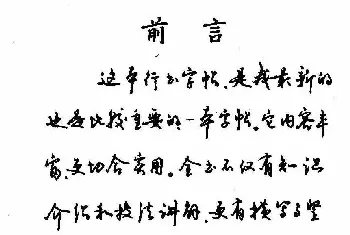 前言
这本行书字帖，是我最新的
也是比较重要的一本字帖。它内容丰
富，更切合实用。全书不仅有知识
介绍和技法讲解，更有横写与竖